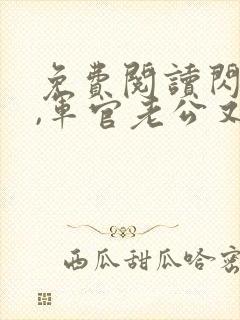 免費閱讀閃
,軍官老公又
西瓜甜瓜哈密